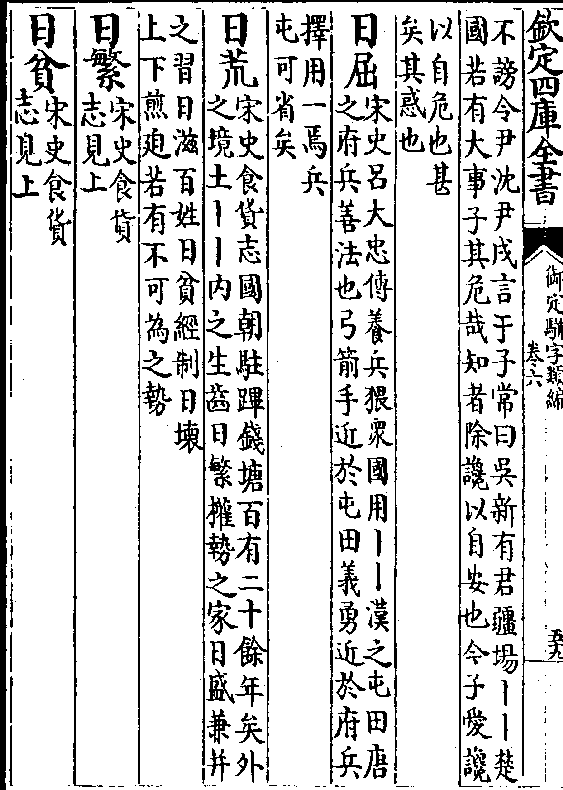 欽定四庫全書
御定駢字類編
卷六
五九
不謗令尹沈尹戌言于子常曰吳新有君疆埸丨丨楚
國若有大事子其危哉知者除讒以自安也今子愛讒
以自危也甚
矣其惑也
日屈
宋史呂大忠傳養兵猥衆國用丨丨漢之屯田唐
之府兵善法也弓箭手近於屯田義勇近於府兵
擇用一焉兵
屯可省矣
日荒
宋史食貨志國朝駐蹕錢塘百有二十餘年矣外
之境土丨丨内之生齒日繁權勢之家日盛兼并
之習日滋百姓日貧經制日壞
上下煎廹若有不可為之勢
日繁
宋史食貨
志見上
日貧
宋史食貨
志見上